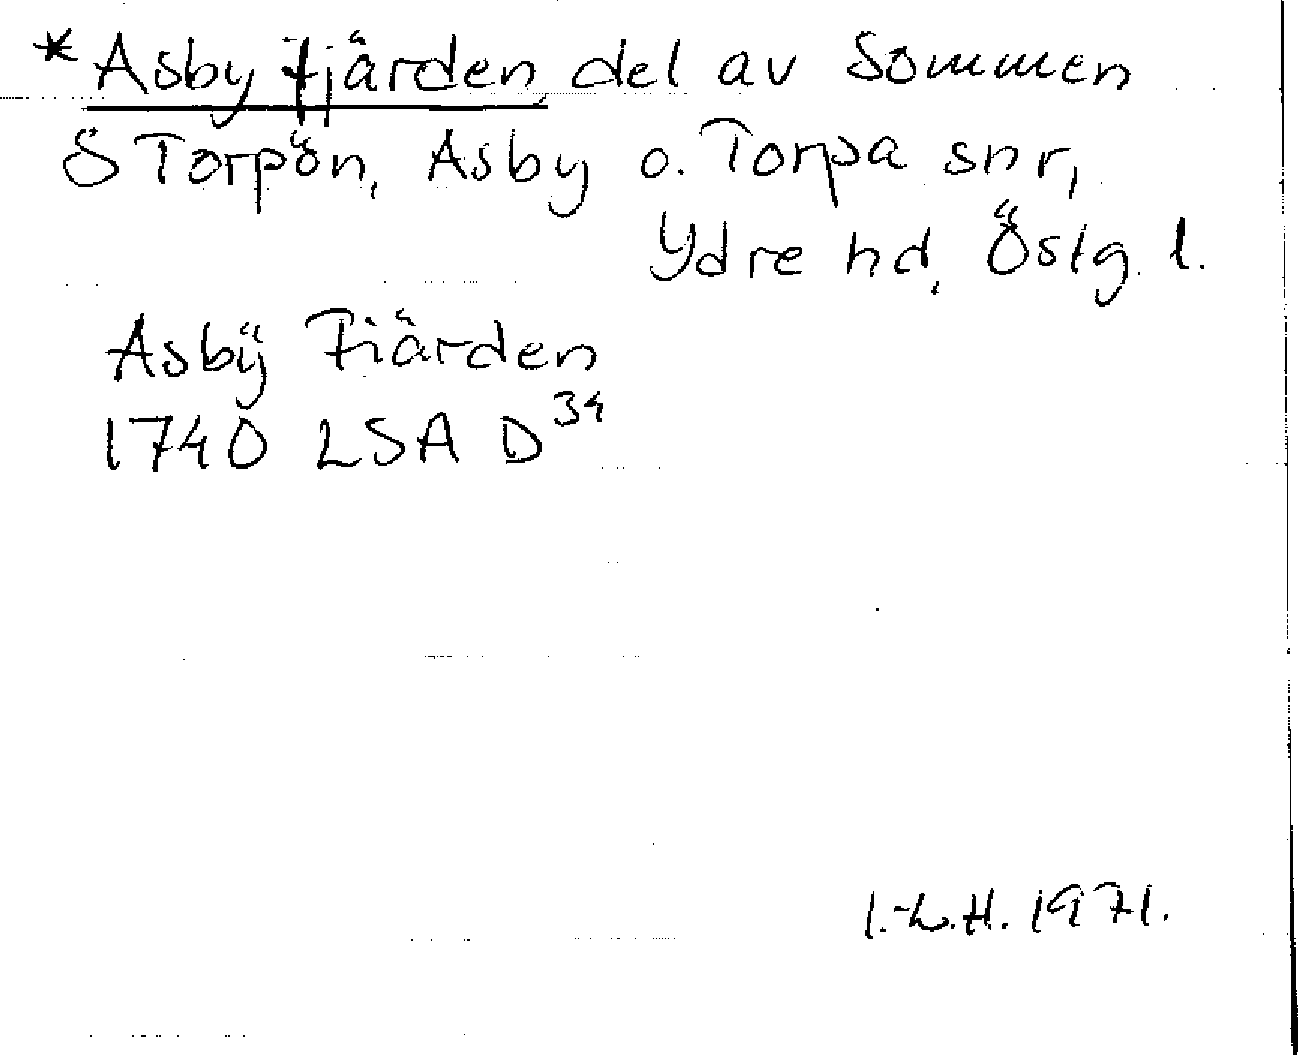 *Asby fjärden, del av Sommen
Ö Torpön, Asby o. Torpa snr,
Ydre hd, Östg. l.
Asbÿ Fiärden
1740 LSA D34
I.-L.H. 1971.